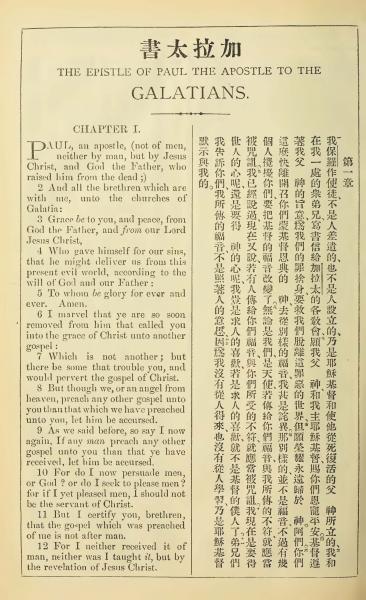 加拉太書
THE EPISTLE OF PAUL THE APOSTLE TO THE
GALATIANS.
CHAPTER I.
PAUL, an apostle, (not of men,
neither by man, but by Jesus
Christ, and God the Father, who
raised him from the dead;)
2 And all the brethren which are
with me, unto the churches of
Galatia:
3 Grace be to you, and peace, from
God the Father, and from our Lord
Jesus Christ,
4 Who gave himself for our sins,
that he might deliver us from this
present evil world, according to the
will of God and our Father:
5 To whom be glory for ever and
ever. Amen.
6 I marvel that ye are so soon
removed from him that called you
into the grace of Christ unto another
gospel:
7 Which is not another; but
there be some that trouble you, and
would pervert the gospel of Christ.
8 But though we, or an angel from
heaven, preach any other gospel unto
you than that which we have preached
unto you, let him be accursed.
9 As we said before, so say I now
again, If any man preach any other
gospel unto you than that ye have
received, let him be accursed.
10 For do I now persuade men,
or God? or do I seek to please men?
for if I yet pleased men, I should not
be the servant of Christ.
11 But I certify you, brethren,
that the gospel which was preached
of me is not after man.
12 For I neither received it of
man, neither was I taught it, but by
the revelation of Jesus Christ.
第一章
我保羅作使徒不是人差遣的也不是人設立的乃是耶穌基督和使他從死復活的父 神所立的我和
在我一處的衆弟兄寫書信給加拉太的各教會願我父 神和我主耶穌基督賜你們恩寵平安基督遵
著我父 神的旨意爲我們的罪捨身要救我們脫離這罪惡的世界但願榮耀永遠歸於 神阿們你們
這麽快離開召你們蒙基督恩典的 神去從別樣的福音我甚是詫異那別樣的並不是福音不過有幾
個人攪擾你們要把基督的福音改變了無論是我們是天使若傳給你們福音與我所傳的不符就應當
被咒詛我已經說過現在又說若有人傳給你們福音與你們所受的不符就應當被咒詛我現在是要得
世人的心呢還是要得 神的心呢我豈是求人的喜歡若是求人的喜歡就不是基督的僕人了弟兄們
我告訴你們我所傳的福音不是照著人的意思因爲我沒有從人得來也沒有從人學習乃是耶穌基督
默示與我的